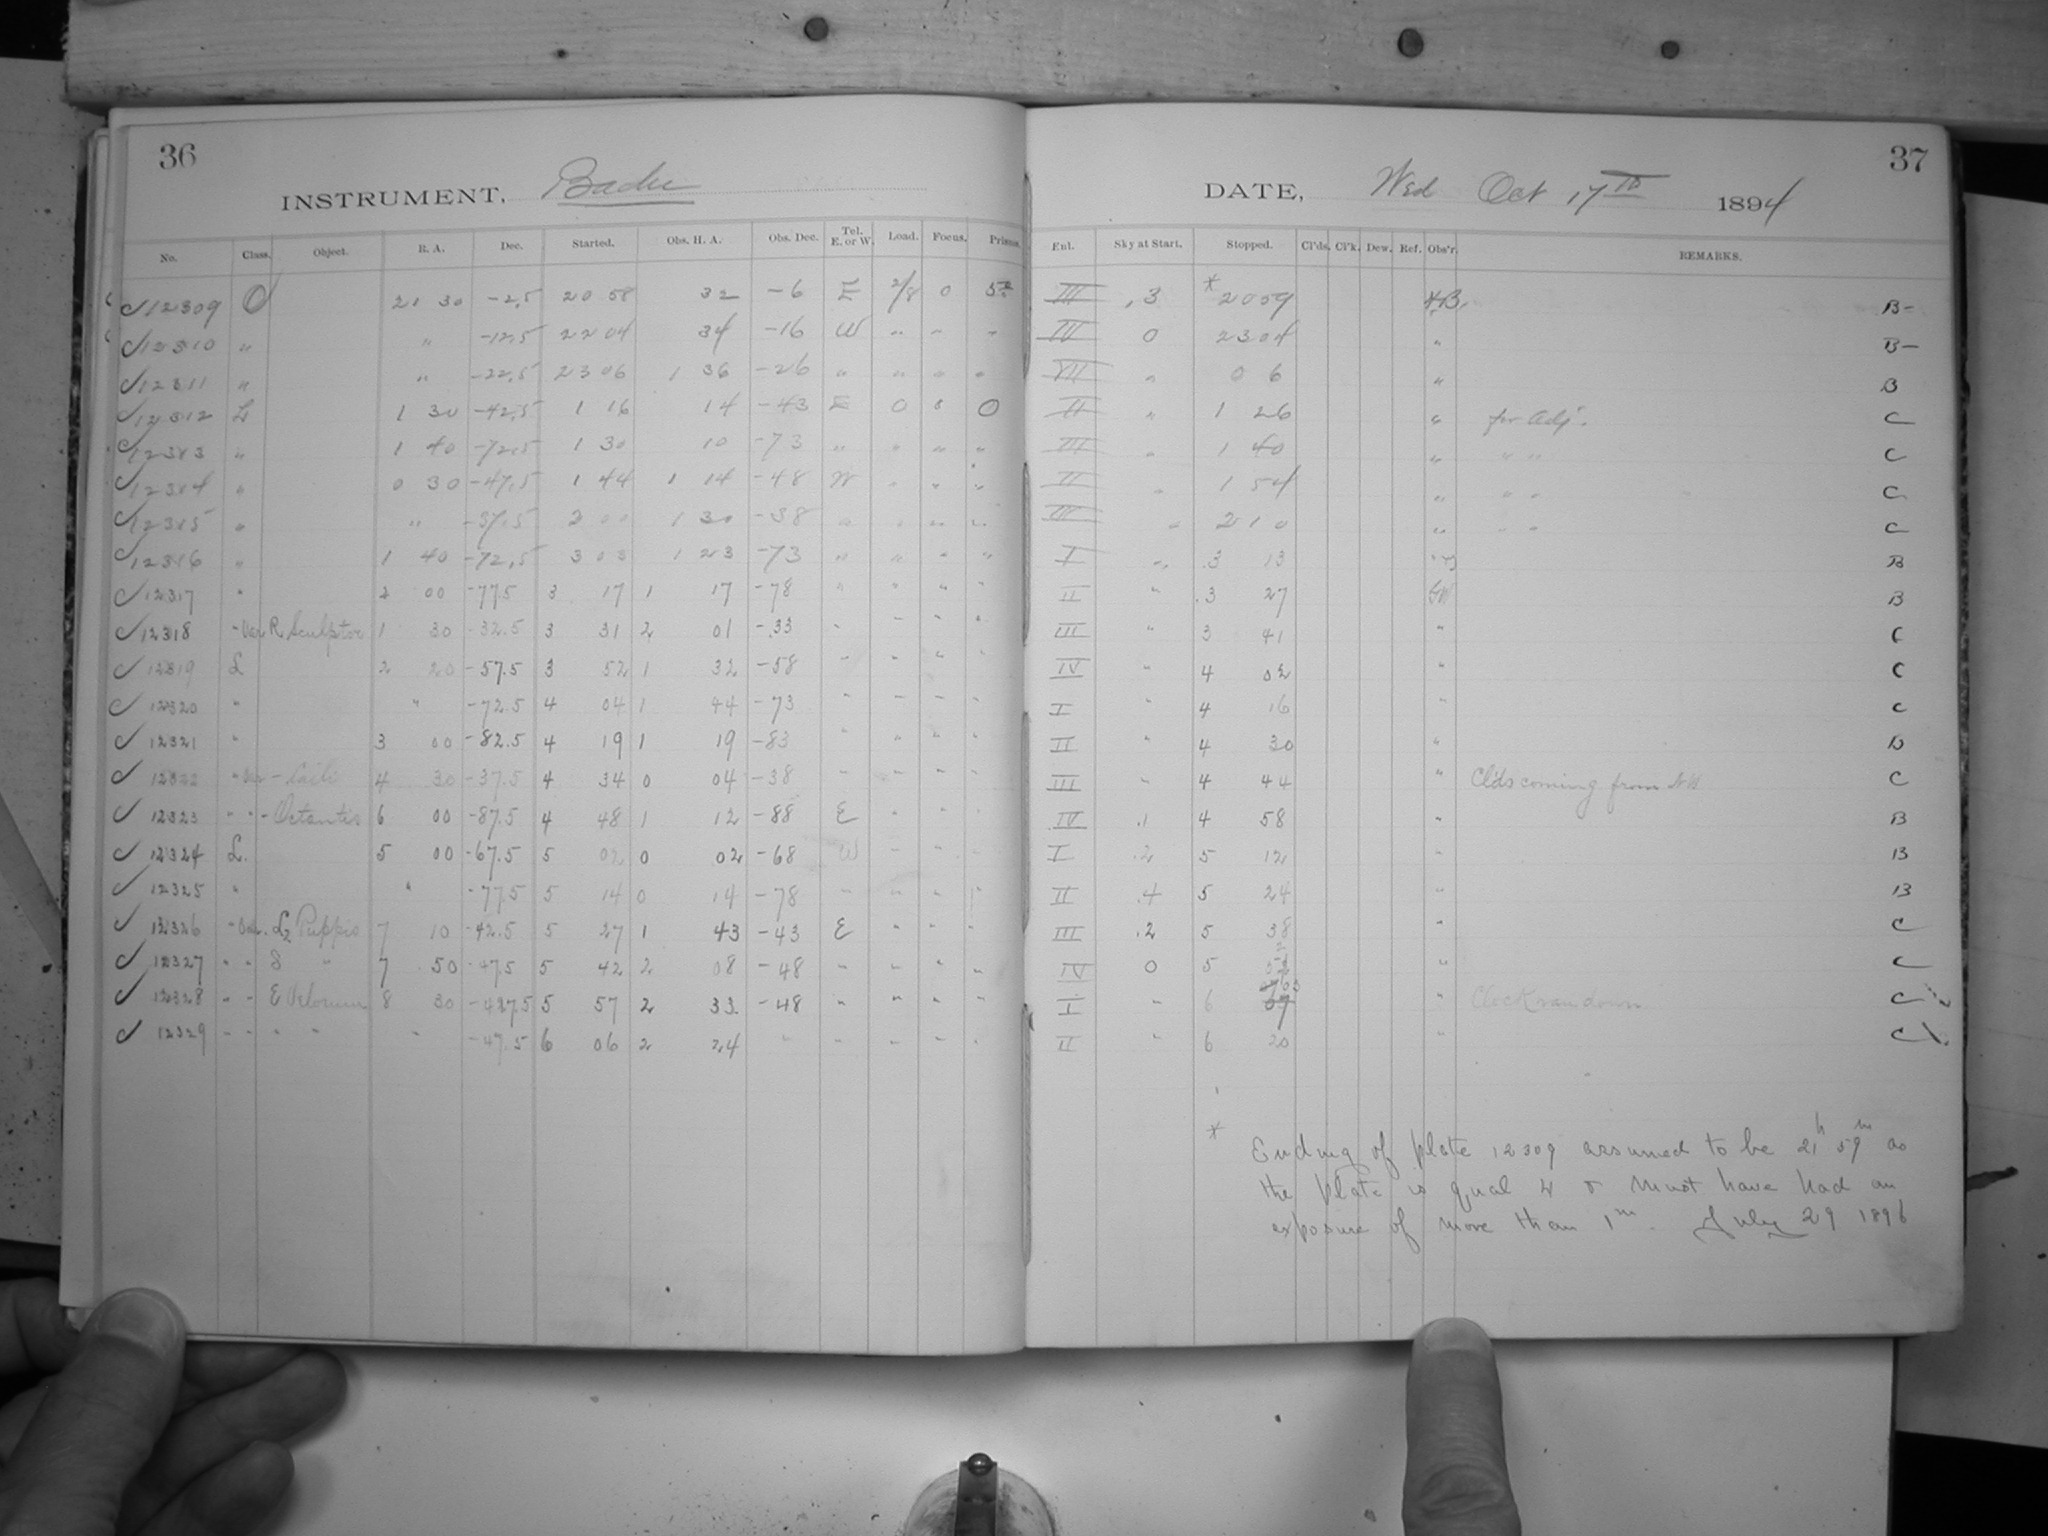 36
INSTRUMENT, Bache
No. Class. Object. R. A. Dec. Started. Obs. H. A. Obs. Dec. Tel. E. or W. Load. Focus. Prisms.
12309 21 30 -2.5 20 58 32 -6 E 2/8 0
12310 " " -12.5 22 04 34 -16 W " " "
12311 " " -22.5 23 06 1 36 -26 " " " "
12312 L 1 30 -42.5 1 16 14 -43 E 0 0
12313 " 1 40 -72.5 1 30 10 -73 " " " "
12314 " 0 30 -47.5 1 44 1 14 -48 W " " "
12315 " " -37.5 2 00 1 30 -38 " " " "
12316 " 1 40 -72.5 3 03 1 23 -73 " " " "
12317 " 2 00 -77.5 3 17 1 17 -78 " " " "
12318 - Var R Sculptor 1 30 -32.5 3 31 2 01 -33 " " " "
12319 L 2 20 -57.5 3 52 1 32 -58 " " " "
12320 " " -72.5 4 04 1 44 -73 " " " "
12321 " 3 00 -82.5 4 19 1 19 -83 " " " "
12322 4 30 -37.5 4 34 0 04 -38 " " " "
12323 " " - Octantis 6 00 -87.5 4 48 1 12 -88 E " " "
12324 L. 5 00 -67.5 5 02 0 02 -68 W " " "
12325 " " -77.5 5 14 0 14 -78 " " " "
12326 L2 Puppis 7 10 -42.5 5 27 1 43 -43 E " " "
12327 " " S " 7 50 -47.5 5 42 2 08 -48 " " " "
12328 " " Velorum 8 30 5 57 2 33 -48 " " " "
12329 " " " " " -47.5 6 06 2 24 " " " " "
37
DATE, Wed Oct 17th 1894
Ent. Sky at Start. Stopped. Cl'ds. Cl'k. Dew. Ref. Obs'r. REMARKS.
III .3 * 20 59 B-
IV 0 23 04 " B-
VII " 0 6 " B
II " 1 26 " for Adj. C
III " 1 40 " " " C
II " 1 54 " " " C
III " 2 10 " " " C
I " 3 13 B
II " 3 27 B
III " 3 41 " C
IV " 4 02 " C
I " 4 16 " C
II " 4 30 " B
III " 4 44 " Clds coming from C
IV .1 4 58 " B
I .2 5 12 " B
II .4 5 24 " B
III .2 5 38 " C
IV 0 5 52 " C
I " 6 " Clock run down C
II " 6 20 " C
* Ending of plate 12309 assumed to be 21h 59m as
the plate is qual 4 & must have had an
exposure of more than 1m. July 29 1896